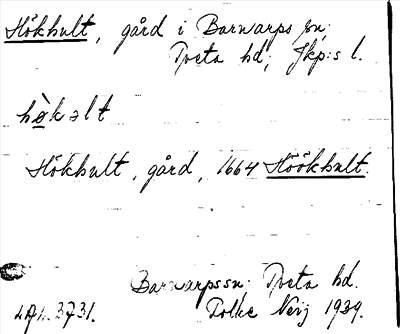 Hökhult, gård i Barnarps sn;
Tveta hd; Jkp:s l.
hök əlt
Hökhult, gård, 1664 Höökhult.
Barnarpssn. Tveta hd.
3731. 1934.